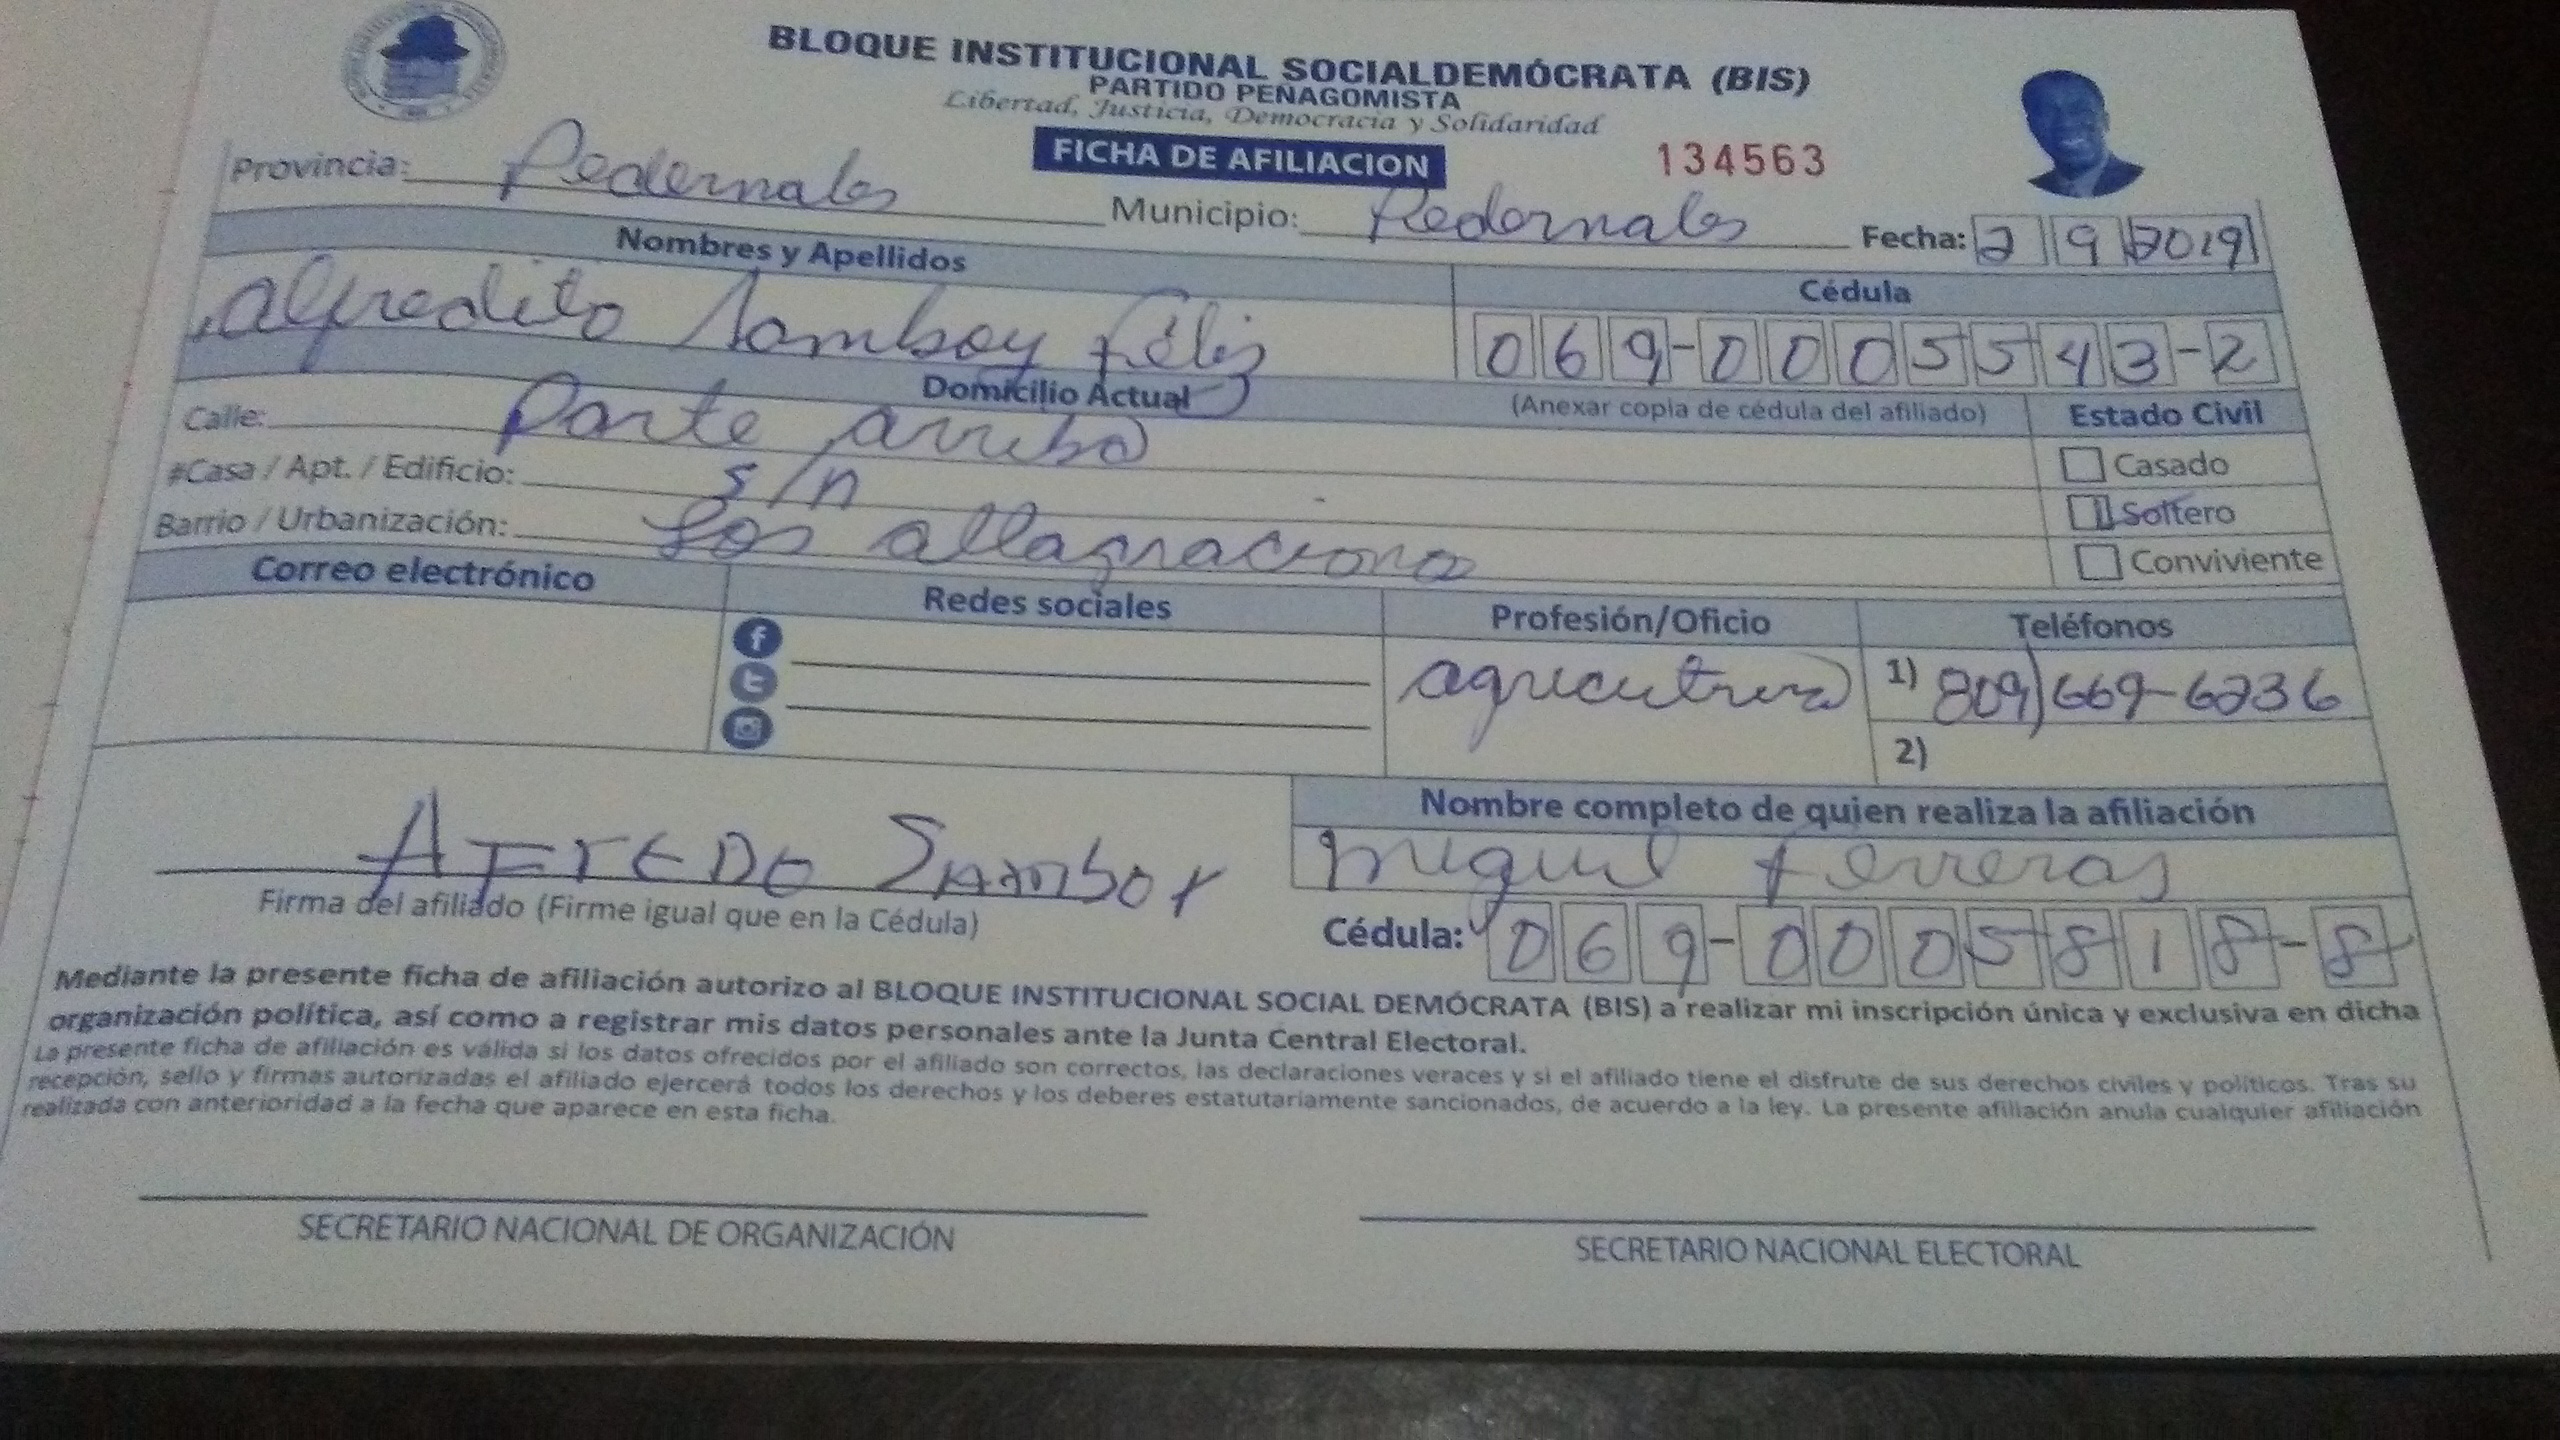 BLOQUE INSTITUCIONAL SOCIALDEMÓCRATA (BIS)
PARTIDO PEÑAGOMISTA
Libertad, Justicia, Democracia y Solidaridad
FICHA DE AFILIACION
134563
Provincia: Pedernales Municipio: Pedernales Fecha: 2 9 2019
Nombres y Apellidos
Cédula
alfredito Samboy féliz
069-0005543-2
Domicilio Actual
(Anexar copia de cédula del afiliado)
Estado Civil
Calle: Parte arriba
Casado
#Casa / Apt. / Edificio: s/n
Soltero
Barrio / Urbanización: Los
Conviviente
Correo electrónico
Redes sociales
Profesión/Oficio
Teléfonos
1) 809)669-6236
2)
Nombre completo de quien realiza la afiliación
Miguel ferreras
Firma del afiliado (Firme igual que en la Cédula)
Cédula: 069-0005818-8
Mediante la presente ficha de afiliación autorizo al BLOQUE INSTITUCIONAL SOCIAL DEMÓCRATA (BIS) a realizar mi inscripción única y exclusiva en dicha
organización política, así como a registrar mis datos personales ante la Junta Central Electoral.
La presente ficha de afiliación es válida si los datos ofrecidos por el afiliado son correctos, las declaraciones veraces y si el afiliado tiene el disfrute de sus derechos civiles y políticos. Tras su
recepción, sello y firmas autorizadas el afiliado ejercerá todos los derechos y los deberes estatutariamente sancionados, de acuerdo a la ley. La presente afiliación anula cualquier afiliación
realizada con anterioridad a la fecha que aparece en esta ficha.
SECRETARIO NACIONAL DE ORGANIZACIÓN
SECRETARIO NACIONAL ELECTORAL